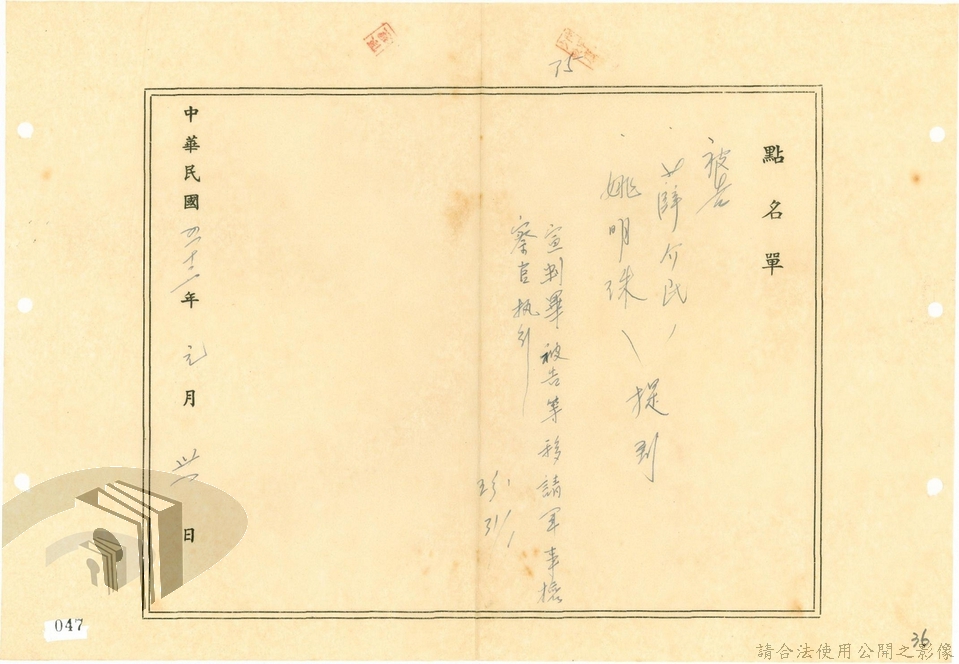 75
點名單
被告
薛介民
姚明珠
提到
宣判畢被告等移請軍事檢
察官执行
中華民國五十二年元月卅一日
047
36
請合法使用公開之影像